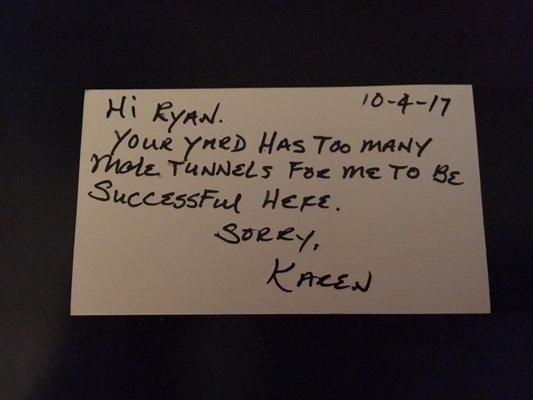 10-4-17
Hi RYAN.
YOUR YARD HAS TOO MANY
MOLE TUNNELS FOR ME TO BE
SUCCESSFUL HERE.
SORRY,
KAREN